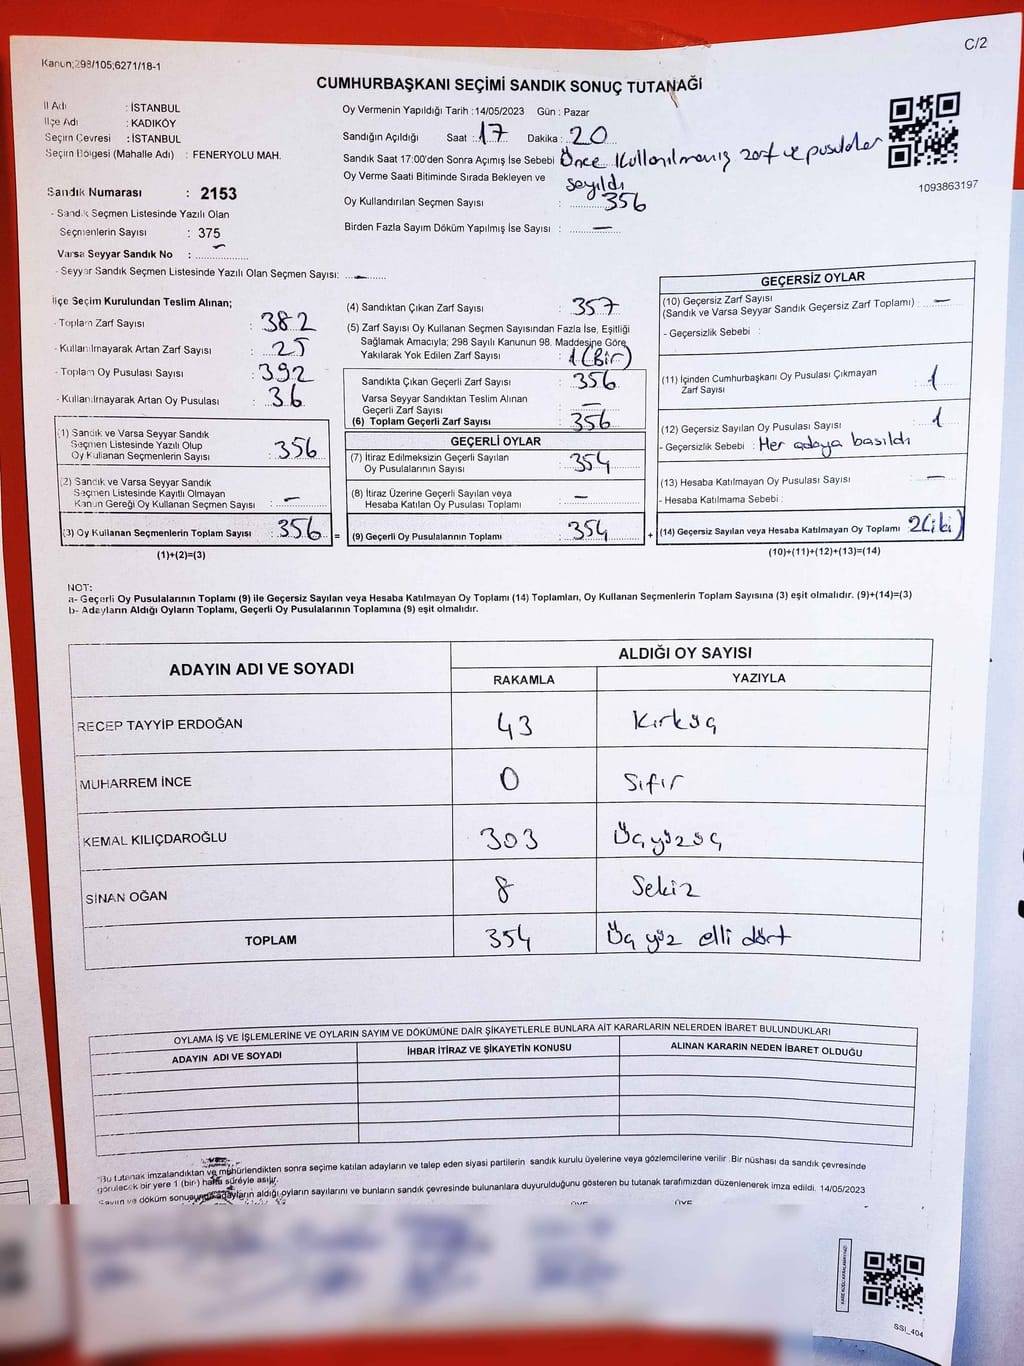 C/2
Kanun;298/105;6271/18-1
CUMHURBAŞKANI SEÇİMİ SANDIK SONUÇ TUTANAĞI
İl Adı : İSTANBUL
İlçe Adı : KADIKÖY
Seçim Çevresi : İSTANBUL
Seçim Bölgesi (Mahalle Adı) : FENERYOLU MAH.
Sandık Numarası : 2153
- Sandık Seçmen Listesinde Yazılı Olan
Seçmenlerin Sayısı : 375
Varsa Seyyar Sandık No : –
- Seyyar Sandık Seçmen Listesinde Yazılı Olan Seçmen Sayısı: –
Oy Vermenin Yapıldığı Tarih : 14/05/2023 Gün : Pazar
Sandığın Açıldığı Saat : 17 Dakika : 20
Sandık Saat 17:00'den Sonra Açımış İse Sebebi Önce kullanılmamış zarf ve pusulalar
Oy Verme Saati Bitiminde Sırada Bekleyen ve sayıldı
Oy Kullandırılan Seçmen Sayısı : 356
Birden Fazla Sayım Döküm Yapılmış İse Sayısı : –
1093863197
İlçe Seçim Kurulundan Teslim Alınan;
- Toplam Zarf Sayısı : 382
- Kullanılmayarak Artan Zarf Sayısı : 25
- Toplam Oy Pusulası Sayısı : 392
- Kullanılmayarak Artan Oy Pusulası : 36
(1) Sandık ve Varsa Seyyar Sandık
Seçmen Listesinde Yazılı Olup
Oy Kullanan Seçmenlerin Sayısı : 356
(2) Sandık ve Varsa Seyyar Sandık
Seçmen Listesinde Kayıtlı Olmayan
Kanun Gereği Oy Kullanan Seçmen Sayısı : –
(3) Oy Kullanan Seçmenlerin Toplam Sayısı : 356 =
(1)+(2)=(3)
(4) Sandıktan Çıkan Zarf Sayısı : 357
(5) Zarf Sayısı Oy Kullanan Seçmen Sayısından Fazla İse, Eşitliği
Sağlamak Amacıyla; 298 Sayılı Kanunun 98. Maddesine Göre
Yakılarak Yok Edilen Zarf Sayısı : 1 (Bir)
Sandıkta Çıkan Geçerli Zarf Sayısı : 356
Varsa Seyyar Sandıktan Teslim Alınan
Geçerli Zarf Sayısı : –
(6) Toplam Geçerli Zarf Sayısı : 356
GEÇERLİ OYLAR
(7) İtiraz Edilmeksizin Geçerli Sayılan
Oy Pusulalarının Sayısı : 354
(8) İtiraz Üzerine Geçerli Sayılan veya
Hesaba Katılan Oy Pusulası Toplamı : –
(9) Geçerli Oy Pusulalarının Toplamı : 354 +
GEÇERSİZ OYLAR
(10) Geçersiz Zarf Sayısı
(Sandık ve Varsa Seyyar Sandık Geçersiz Zarf Toplamı) : –
- Geçersizlik Sebebi :
(11) İçinden Cumhurbaşkanı Oy Pusulası Çıkmayan
Zarf Sayısı : 1
(12) Geçersiz Sayılan Oy Pusulası Sayısı : 1
- Geçersizlik Sebebi : Her adaya basıldı
(13) Hesaba Katılmayan Oy Pusulası Sayısı : –
- Hesaba Katılmama Sebebi :
(14) Geçersiz Sayılan veya Hesaba Katılmayan Oy Toplamı 2 (iki)
(10)+(11)+(12)+(13)=(14)
NOT:
a- Geçerli Oy Pusulalarının Toplamı (9) ile Geçersiz Sayılan veya Hesaba Katılmayan Oy Toplamı (14) Toplamları, Oy Kullanan Seçmenlerin Toplam Sayısına (3) eşit olmalıdır. (9)+(14)=(3)
b- Adayların Aldığı Oyların Toplamı, Geçerli Oy Pusulalarının Toplamına (9) eşit olmalıdır.
ADAYIN ADI VE SOYADI
ALDIĞI OY SAYISI
RAKAMLA YAZIYLA
RECEP TAYYİP ERDOĞAN 43 Kırküç
MUHARREM İNCE 0 Sıfır
KEMAL KILIÇDAROĞLU 303 Üçyüzüç
SİNAN OĞAN 8 Sekiz
TOPLAM 354 Üç yüz elli dört
OYLAMA İŞ VE İŞLEMLERİNE VE OYLARIN SAYIM VE DÖKÜMÜNE DAİR ŞİKAYETLERLE BUNLARA AİT KARARLARIN NELERDEN İBARET BULUNDUKLARI
ADAYIN ADI VE SOYADI İHBAR İTİRAZ VE ŞİKAYETİN KONUSU ALINAN KARARIN NEDEN İBARET OLDUĞU
"Bu tutanak imzalandıktan ve mühürlendikten sonra seçime katılan adayların ve talep eden siyasi partilerin sandık kurulu üyelerine veya gözlemcilerine verilir .Bir nüshası da sandık çevresinde
görülecek bir yere 1 (bir) hafta süreyle asılır.
Sayım ve döküm sonucunun adayların aldığı oyların sayılarını ve bunların sandık çevresinde bulunanlara duyurulduğunu gösteren bu tutanak tarafımızdan düzenlenerek imza edildi. 14/05/2023
SSI_404